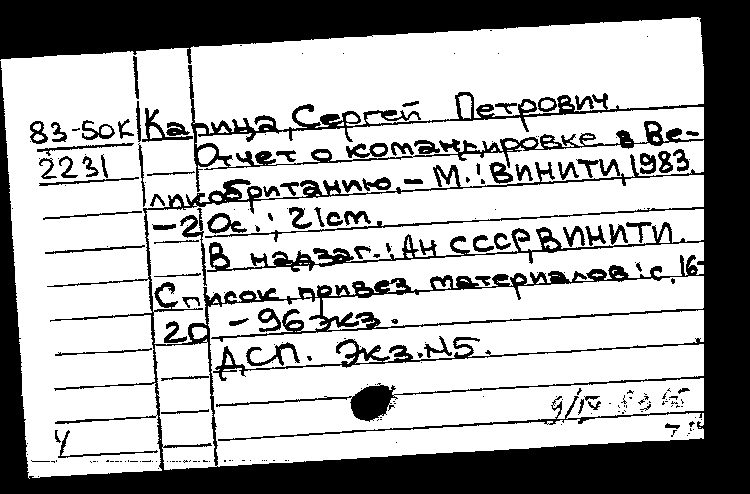 83-50К Карица, Сергей Петрович.
2231 Отчет о командировке в Ве-
ликобританию. – М.: ВИНИТИ, 1983.
– 20с.; 21см.
В надзаг.: АН СССР, ВИНИТИ.
Список привез. материалов: с. 16-
20. – 96 экз.
ДСП. Экз. №5.
9/IV-83